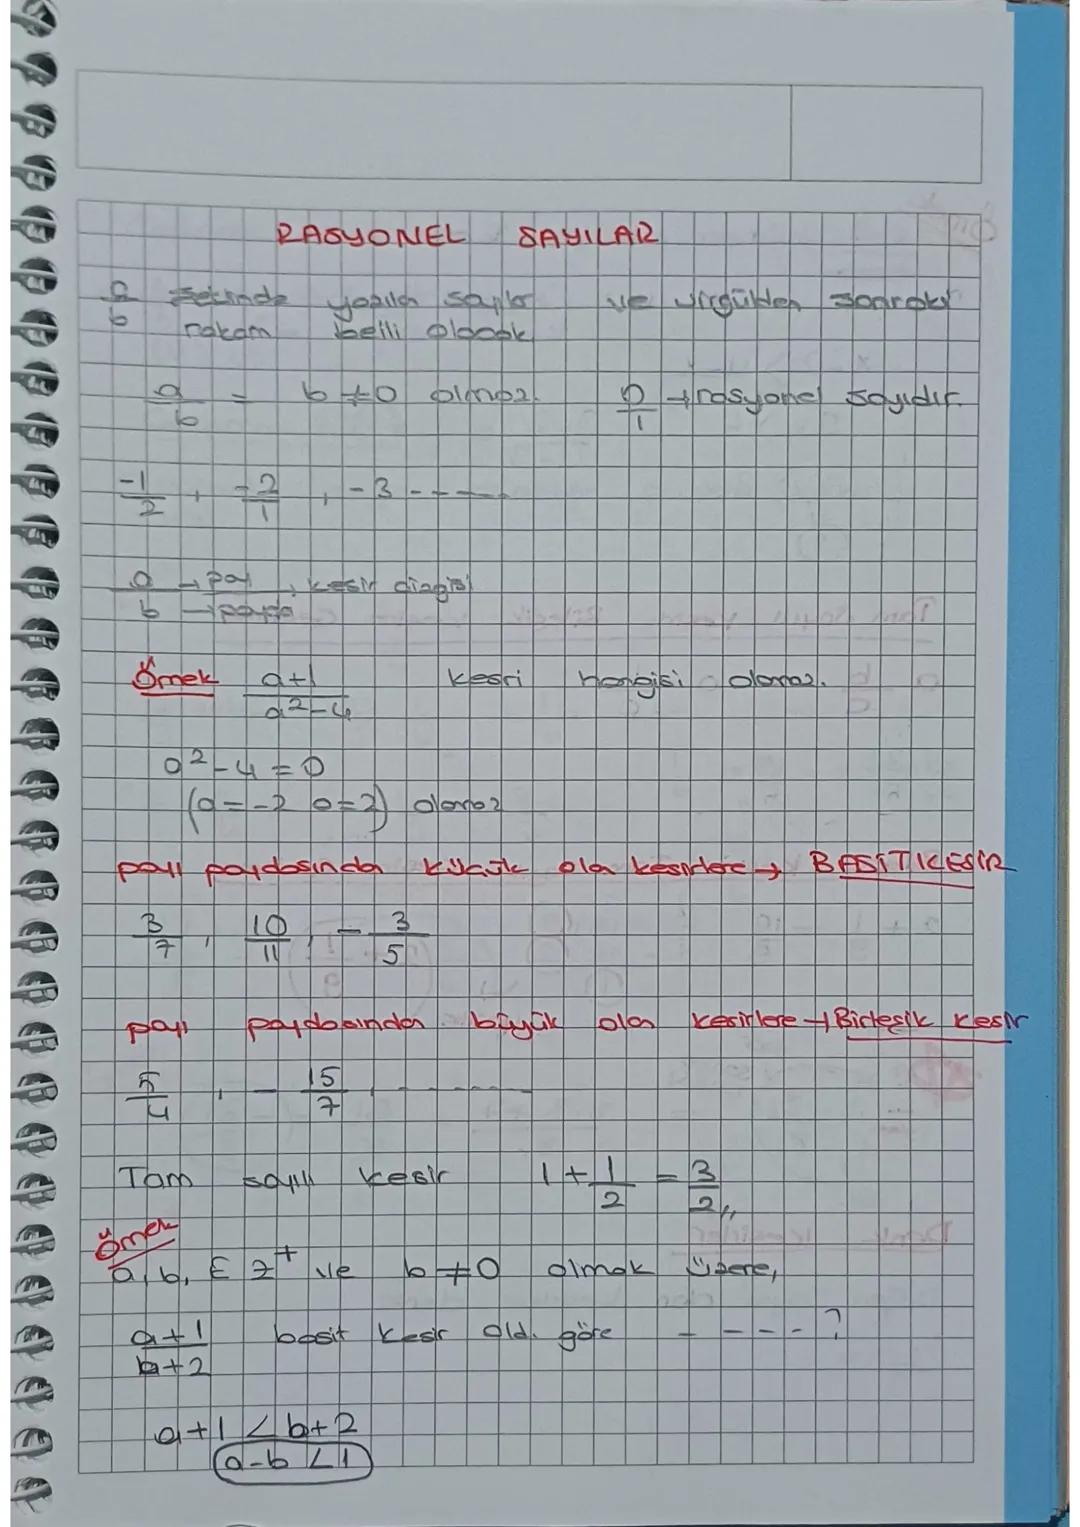 RASYONEL SAYILAR
a/b şeklinde yazılan sayılar ve virgülden sonraki
rakam belli olacak
a/b = b≠0 olmaz. 0/1 → rasyonel sayıdır.
-1/2 , -2/1 , -3 ------
a → pay , kesir çizgisi
b → payda
Örnek a+1/a²-4 kesri hangisi olamaz.
a²-4=0
(a=-2 a=2) olamaz
payı paydasından küçük olan kesirlere → BASİT KESİR
3/7 , 10/11 , -3/5
payı paydasından büyük olan kesirlere → Birleşik kesir
5/4 , -15/7 , ------
Tam sayılı kesir 1+1/2 = 3/2,,
Örnek
a, b, ∈ Z⁺ ve b≠0 olmak üzere,
a+1/b+2 basit kesir old. göre ----?
a+1 < b+2
a-b < 1